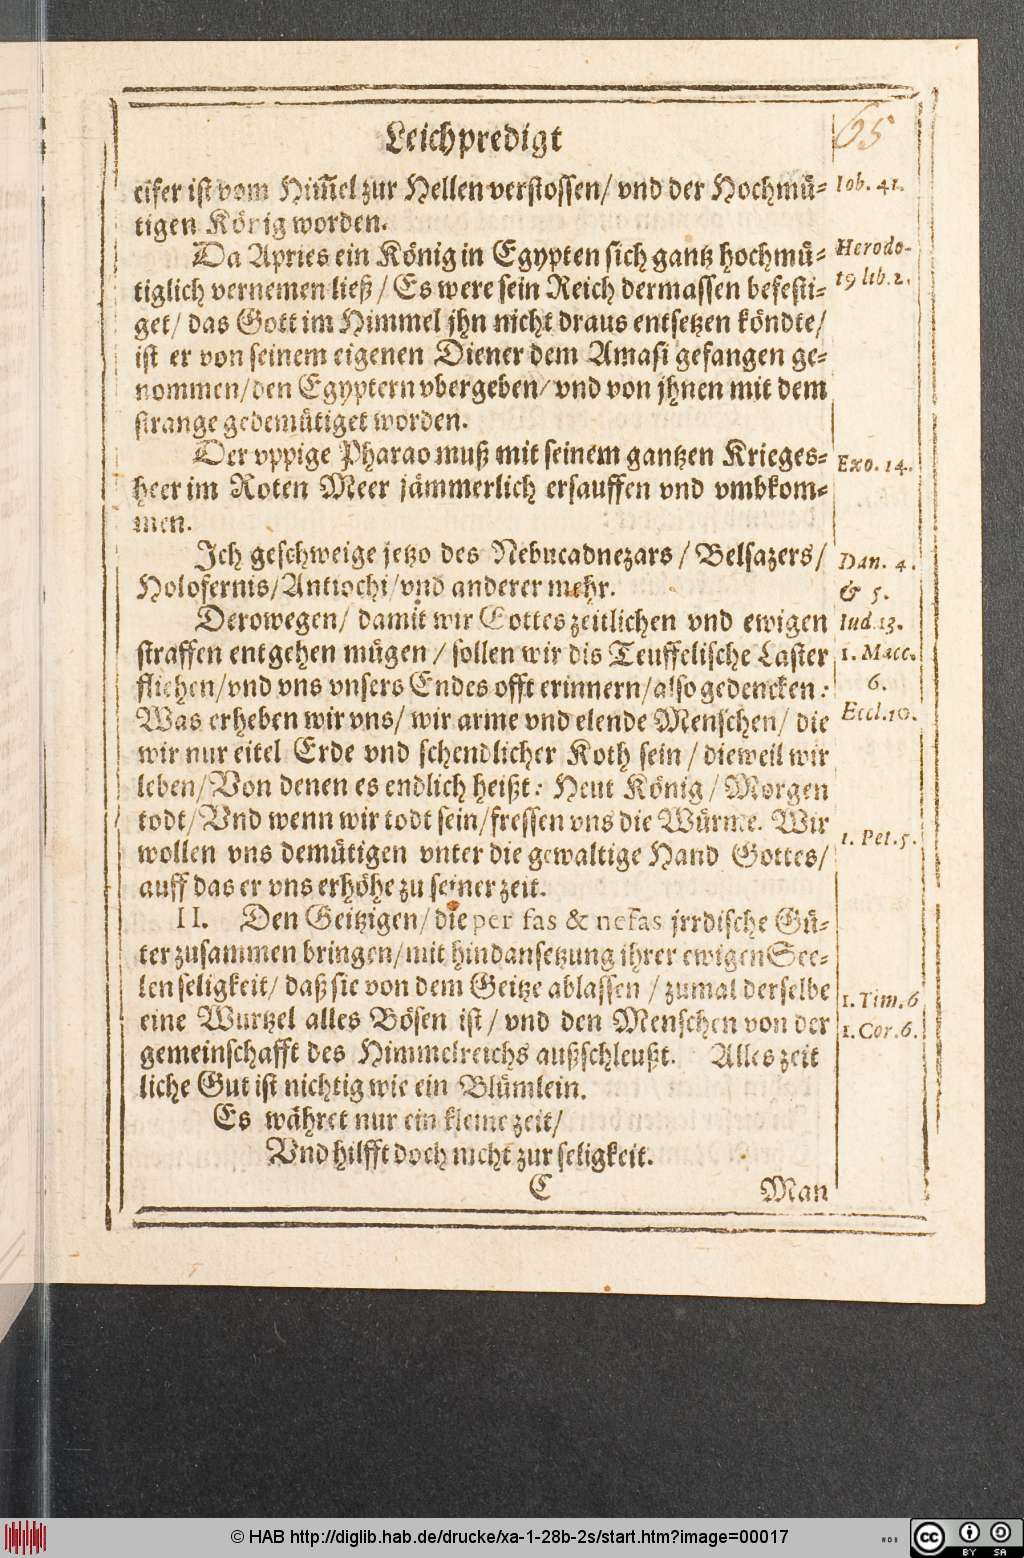 65
Leichpredigt
cifer ist vom Him̃el zur Hellen verstossen/ vnd der Hochmuͤ-
tigen Koͤnig worden.
Da Apries ein Koͤnig in Egypten sich gantz hochmuͤ-
tiglich vernemen ließ / Es were sein Reich dermassen befesti-
get/ das Gott im Himmel jhn nicht draus entsetzen koͤndte/
ist er von seinem eigenen Diener dem Amasi gefangen ge-
nommen/den Egyptern vbergeben/ vnd von jhnen mit dem
strange gedemuͤtiget worden.
Der vppige Pharao muß mit seinem gantzen Krieges-
heer im Roten Meer jaͤmmerlich ersauffen vnd vmbkom-
men.
Ich geschweige jetzo des Nebucadnezars / Belsazers/
Holofernis/Antiochi/vnd anderer mehr.
Derowegen/ damit wir Gottes zeitlichen vnd ewigen
straffen entgehen muͤgen / sollen wir dis Teuffelische Laster
fliehen/vnd vns vnsers Endes offt erinnern/also gedencken:
Was erheben wir vns/ wir arme vnd elende Menschen/ die
wir nur eitel Erde vnd schendlicher Koth sein / dieweil wir
leben/Von denen es endlich heißt: Heut Koͤnig / Morgen
todt/Vnd wenn wir todt sein/fressen vns die Wuͤrme. Wir
wollen vns demuͤtigen vnter die gewaltige Hand Gottes/
auff das er vns erhoͤhe zu seiner zeit.
II. Den Geitzigen/die per fas & nefas jrrdische Guͤ-
ter zusammen bringen/mit hindansetzung ihrer ewigen See-
len seligkeit/ daß sie von dem Geitze ablassen / zumal derselbe
eine Wurtzel alles Boͤsen ist / vnd den Menschen von der
gemeinschafft des Himmelreichs außschleußt. Alles zeit
liche Gut ist nichtig wie ein Bluͤmlein.
Es waͤhret nur ein kleine zeit/
Vnd hilfft doch nicht zur seligkeit.
C Man
Iob. 41.
Herodo-
t9 lib. 2.
Exo. 14.
Dan. 4.
& 5.
Iud. 13.
1. Macc.
6.
Eccl. 10.
1. Pet. 5.
1. Tim. 6
1. Cor. 6.
© HAB http://diglib.hab.de/drucke/xa-1-28b-2s/start.htm?image=00017
cc BY SA